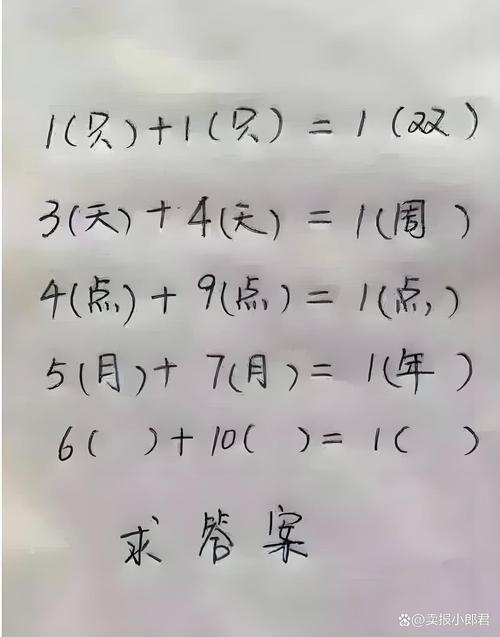 1(只)+1(只)=1(双)
3(天)+4(天)=1(周)
4(点)+9(点)=1(点)
5(月)+7(月)=1(年)
6( )+10( )=1( )
求答案
百家号/卖报小郎君